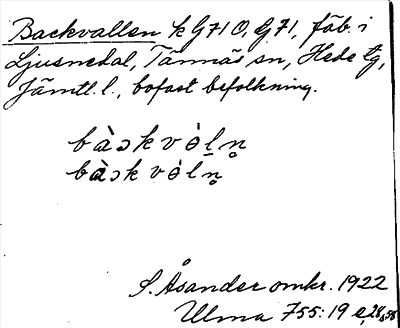 Backvallen k G71 O, G71, fäb. i
Ljusnedal, Tännäs sn, Hede tg,
Jämtl. l., bofast befolkning.
bàɔkvòl̲n̥
bàɔkvòl̲n̥
S. Åsander omkr. 1922
Ulma 755:19 e, 28, s. 38